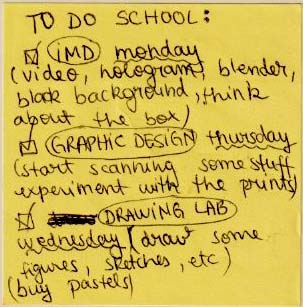 TO DO SCHOOL:
☑ IMD monday
(video, hologram, blender,
black background, think
about the box)
☑ GRAPHIC DESIGN thursday
(start scanning some stuff
experiment with the prints)
☑ DRAWING LAB
wednesday (draw some
figures, sketches, etc)
(buy pastels)